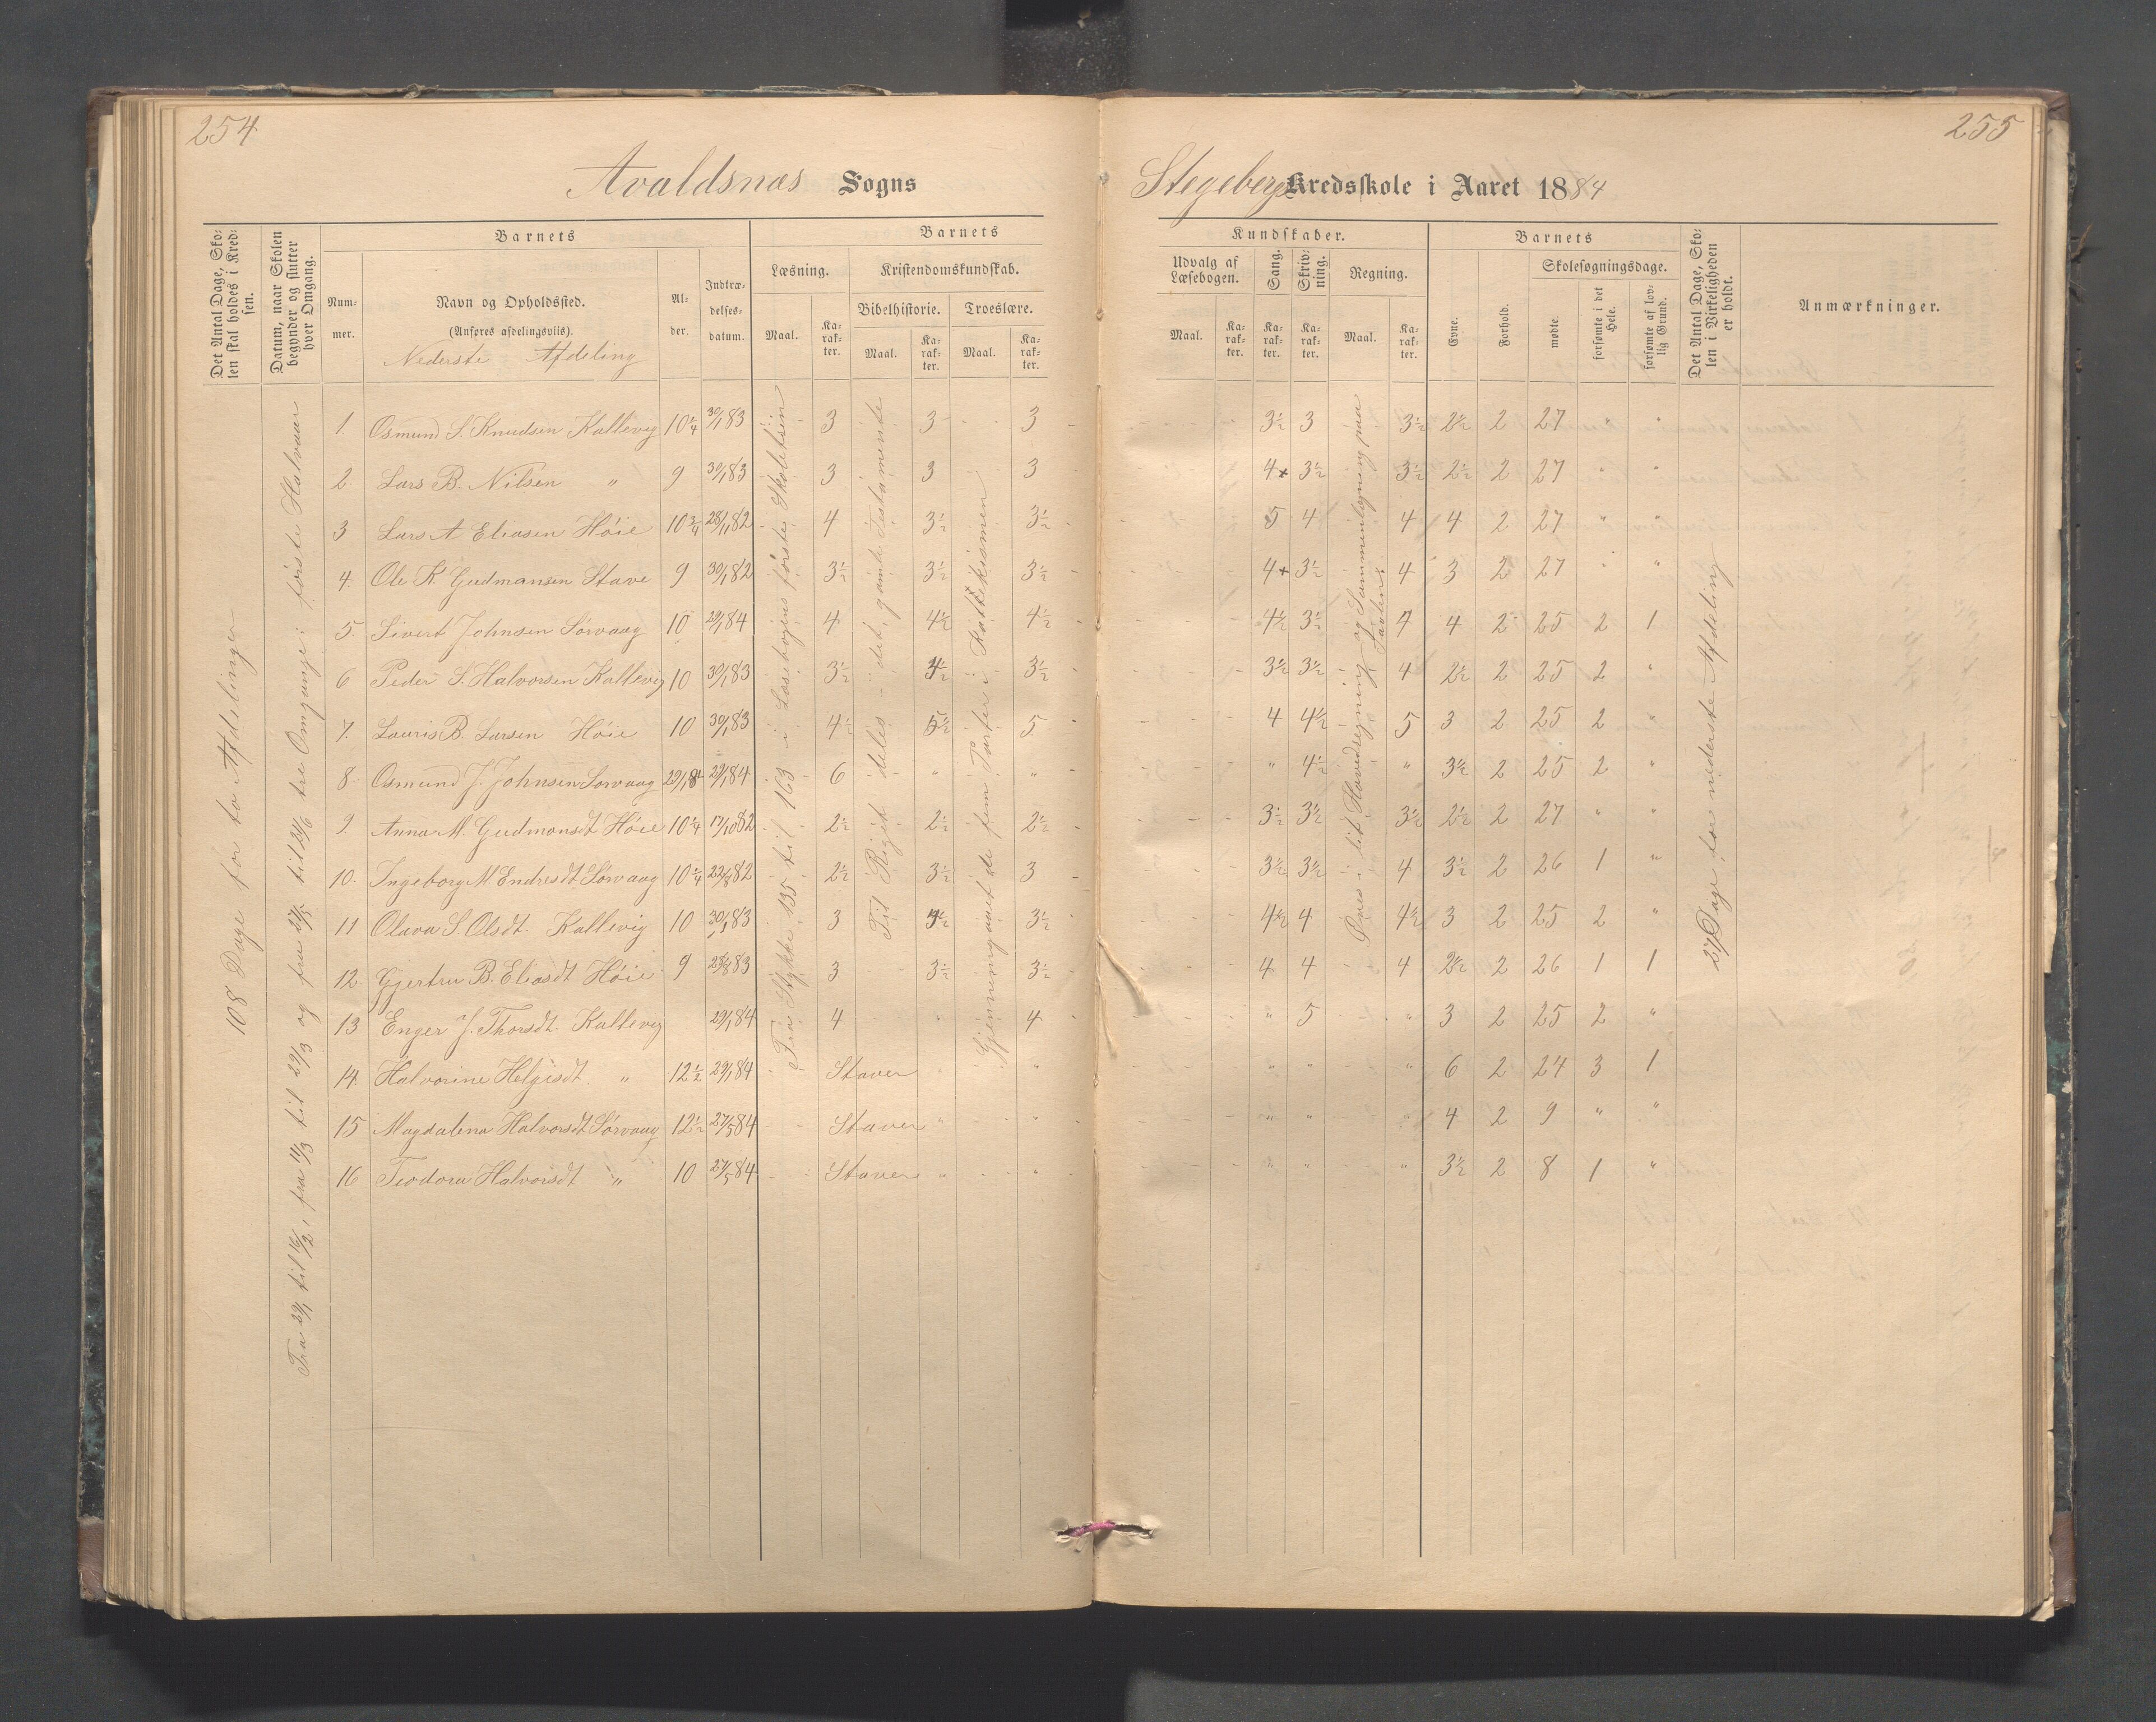 254
255
Avaldsnæs Sogns
Stegebergs Kredsskole i Aaret 1884
Det Antal Dage, Sko-
len skal holdes i Kred-
sen.
Datum, naar Skolen
begynder og slutter
hver Omgang.
Barnets
Num-
mer.
Navn og Opholdssted.
(Anføres afdelingsviis).
Nederste Afdeling
Al-
der.
Indtræ-
delses-
datum.
Barnets
Læsning.
Maal.
Ka-
rak-
ter.
Kristendomskundskab.
Bibelhistorie.
Troeslære.
Maal.
Ka-
rak-
ter.
Maal.
Ka-
rak-
ter.
Kundskaber.
Udvalg af
Læsebogen.
Maal.
Ka-
rak-
ter.
Sang.
Ka-
rak-
ter.
Skriv-
ning.
Ka-
rak-
ter.
Regning.
Maal.
Ka-
rak-
ter.
Barnets
Evne.
Forhold.
Skolesøgningsdage.
mødte.
forsømte i det
Hele.
forsømte af lov-
lig Grund.
Det Antal Dage, Sko-
len i Virkeligheden
er holdt.
Anmærkninger.
108 Dage for to Afdelinger
Fra 29/1 til 16/2, fra 11/3 til 29/3 og fra 27/5 til 21/6 tre Omgange i første Halvaar
Fra Stykke 135 til 163 i Læsebogens første Skoletrin
Til Riget deles - det gamle Testamente
Gjennemgaaet de fem Parter i Katekismen
Øves i lit Hovedregning og Sammenlægning paa
Tavlen.
27 Dage for nederste Afdeling
1. Osmund S. Knudsen Kallevig 10 1/4 30/1 83 3 3 3 3 1/2 3 3 1/2 2 1/2 2 27 " "
2. Lars B. Nilsen " 9 30/1 83 3 3 3 4+ 3 1/2 3 1/2 2 1/2 2 27 " "
3 Lars A Eliasen Høie 10 3/4 28/11 82 4 3 1/2 3 1/2 5 4 4 4 2 27 " "
4. Ole K. Gudmansen Stave 9 30/1 82 3 1/2 3 1/2 3 1/2 4+ 3 1/2 4 3 2 27 " "
5. Sivert Johnsen Sørvaag 10 29/1 84 4 4 1/2 4 1/2 4 1/2 3 1/2 4 4 2 25 2 1
6 Peder S. Halvorsen Kallevig 10 30/1 83 3 1/2 4 1/2 3 1/2 3 1/2 3 1/2 4 2 1/2 2 25 2 "
7. Lauris B. Larsen Høie 10 30/1 83 4 1/2 5 1/2 5 4 4 1/2 5 3 2 25 2 "
8. Osmund J. Johnsen Sørvaag 29/1 84 29/1 84 6 " " " 4 1/2 " 3 1/2 2 25 2 "
9 Anna M. Gudmansdt Høie 10 1/4 17/10 82 2 1/2 2 1/2 2 1/2 3 1/2 3 1/2 3 1/2 2 1/2 2 27 " "
10. Ingeborg M. Endresdt Sørvaag 10 1/4 22/8 82 2 1/2 3 1/2 3 3 1/2 3 1/2 4 3 1/2 2 26 1 "
11 Olava S. Olsdt. Kallevig 10 30/1 83 3 4 1/2 3 1/2 4 1/2 4 4 1/2 3 2 25 2 "
12. Gjertru B. Eliasdt Høie 9 28/8 83 3 3 1/2 3 1/2 4 4 4 2 1/2 2 26 1 1
13 Enger J. Thorsdt. Kallevig 29/1 84 4 " 4 " 5 " 3 2 25 2 "
14. Halvorine Helgisdt " 12 1/2 29/1 84 Staver " " " " " 6 2 24 3 1
15 Magdalena Halvorsdt Sørvaag 12 1/2 27/5 84 Staver " " " " " 4 2 9 " "
16 Teodora Halvorsdt " 10 27/5 84 Staver " " " " " 3 1/2 2 8 1 "